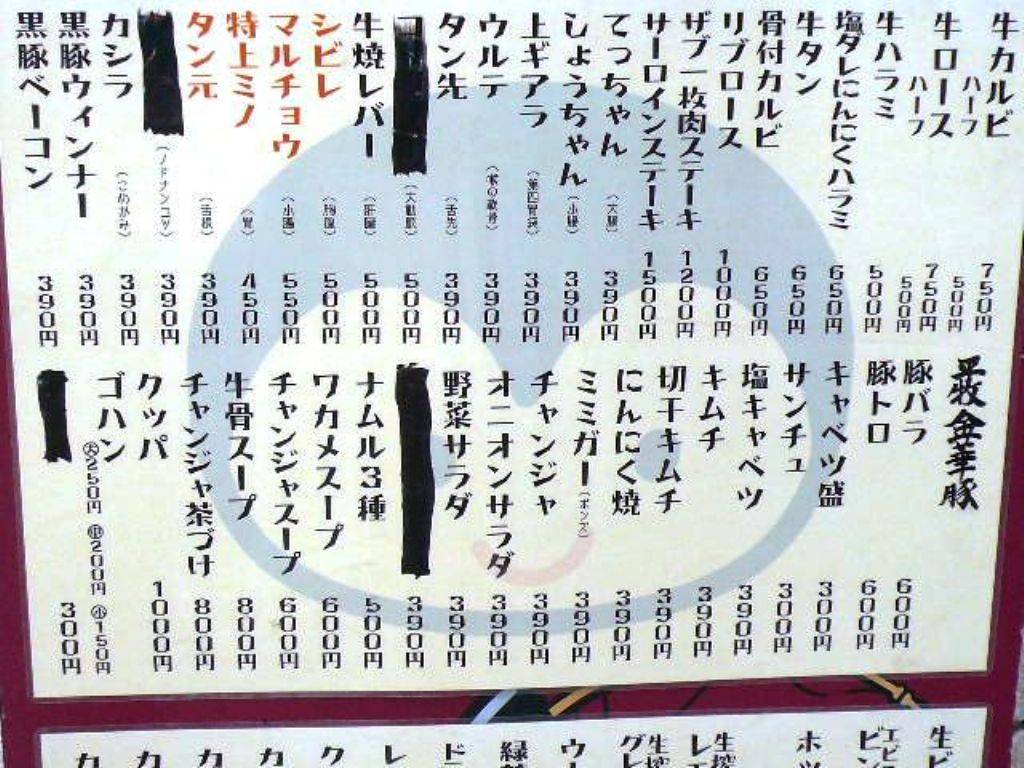 牛カルビ 750円
ハーフ 500円
牛ロース 750円
ハーフ 500円
牛ハラミ 500円
塩ダレにんにくハラミ 650円
牛タン 650円
骨付カルビ 650円
リブロース 1000円
ザブ一枚肉ステーキ 1200円
サーロインステーキ 1500円
てっちゃん (大腸) 390円
しょうちゃん (小腸) 390円
上ギアラ (第四胃袋) 390円
ウルテ (喉の軟骨) 390円
タン先 (舌先) 390円
(大動脈) 500円
牛焼レバー (肝臓) 500円
シビレ (胸腺) 500円
マルチョウ (小腸) 550円
特上ミノ (胃) 450円
タン元 (舌根) 390円
(ノドナンコツ) 390円
カシラ (こめかみ) 390円
黒豚ウィンナー 390円
黒豚ベーコン 390円
平牧金華豚
豚バラ 600円
豚トロ 600円
キャベツ盛 300円
サンチュ 300円
塩キャベツ 390円
キムチ 390円
切干キムチ 390円
にんにく焼 390円
ミミガー(ポンズ) 390円
チャンジャ 390円
オニオンサラダ 390円
野菜サラダ 390円
390円
ナムル3種 500円
ワカメスープ 600円
チャンジャスープ 600円
牛骨スープ 800円
チャンジャ茶づけ 800円
クッパ 1000円
ゴハン 大250円 中200円 小150円
300円
生ビ
エビス
ビン
ホッ
生搾
レモ
生搾
グレ
ウー
緑
ド
レ
ク
カ
カ
カ
カ